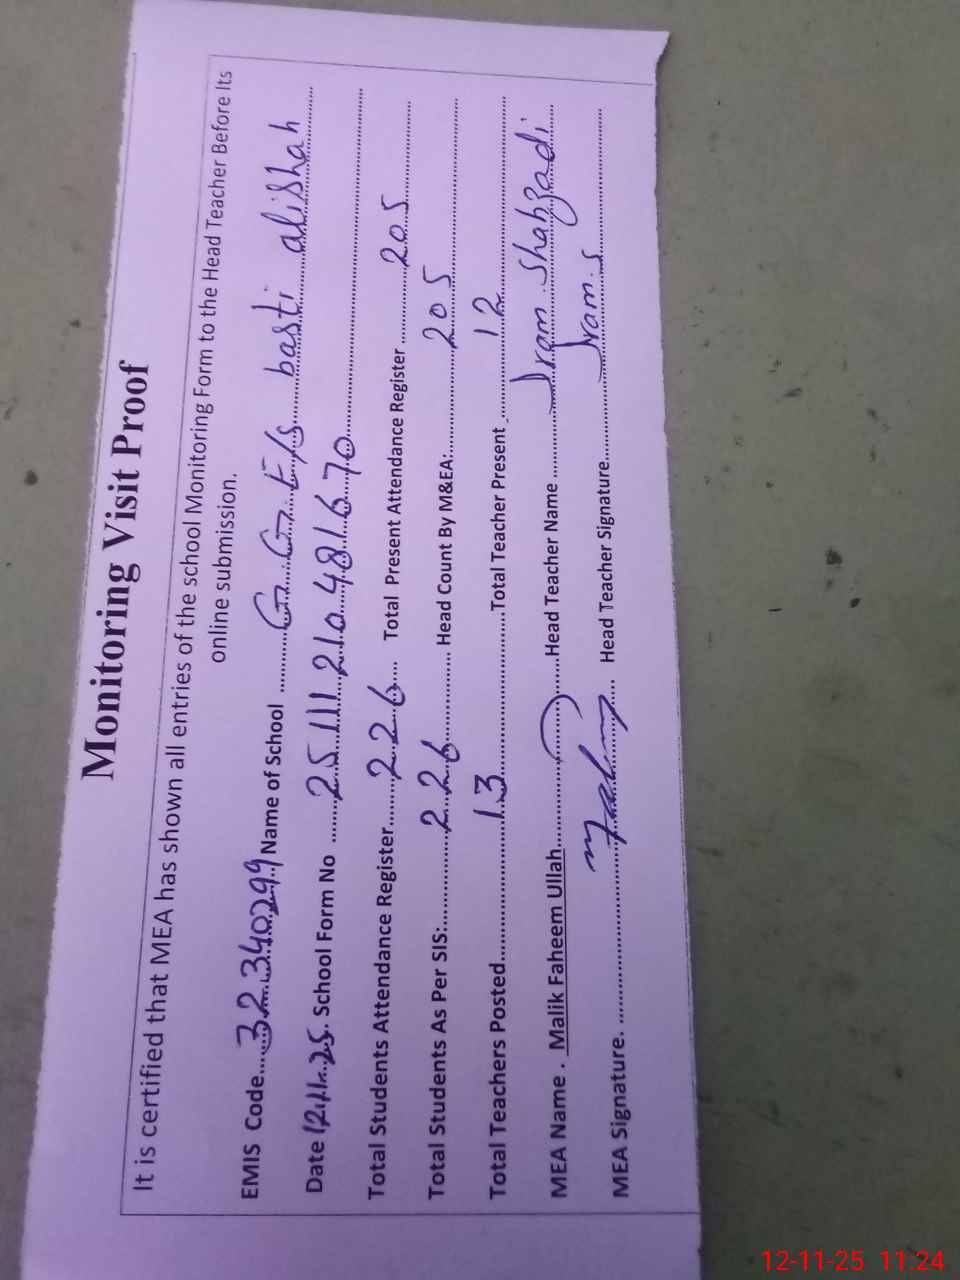 Monitoring Visit Proof
It is certified that MEA has shown all entries of the school Monitoring Form to the Head Teacher Before Its
online submission.
EMIS Code.....32340299 Name of School ..........G.G.E/S basti alishah
Date 12.11.25. School Form No ........25111210481670
Total Students Attendance Register........226..... Total Present Attendance Register ............205
Total Students As Per SIS:............226............ Head Count By M&EA:............205
Total Teachers Posted............13............Total Teacher Present ............12
MEA Name . Malik Faheem Ullah............Head Teacher Name ............Iram Shahzadi
MEA Signature. ............ Head Teacher Signature............Iram.S
12-11-25 11:24